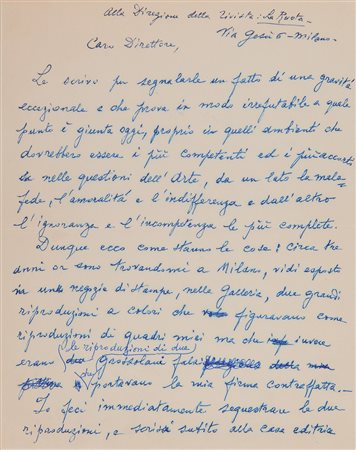 Alla Direzione della Rivista: La Ruota -
Via Gesù 6 - Milano -
Caro Direttore,
Le scrivo per segnalarle un fatto di una gravità
eccezionale e che prova in modo irrefutabile a quale
punto è giunta oggi, proprio in quell'ambienti che
dovrebbero essere i più competenti ed i più accorti
in nelle questioni dell'Arte, da un lato la mala-
fede, l'amoralità e l'indifferenza e dall'altro
l'ignoranza e l'incompetenza le più complete.
Dunque ecco come stanno le cose: circa tre
anni or sono trovandomi a Milano, vidi esposte
in un negozio di stampe, nelle Galleria, due grandi
riproduzioni a colori che figuravano come
riproduzioni di quadri miei ma che invece
le riproduzioni di due
erano grossolani falsi
che portavano la mia firma contraffatta. -
Io feci immediatamente sequestrare le due
riproduzioni, e scrissi subito alla casa editrice